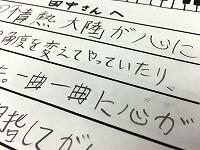 田中さんへ
情熱大陸が心に
角度を変えてやっていたり、
。一曲一曲に心が
指してが